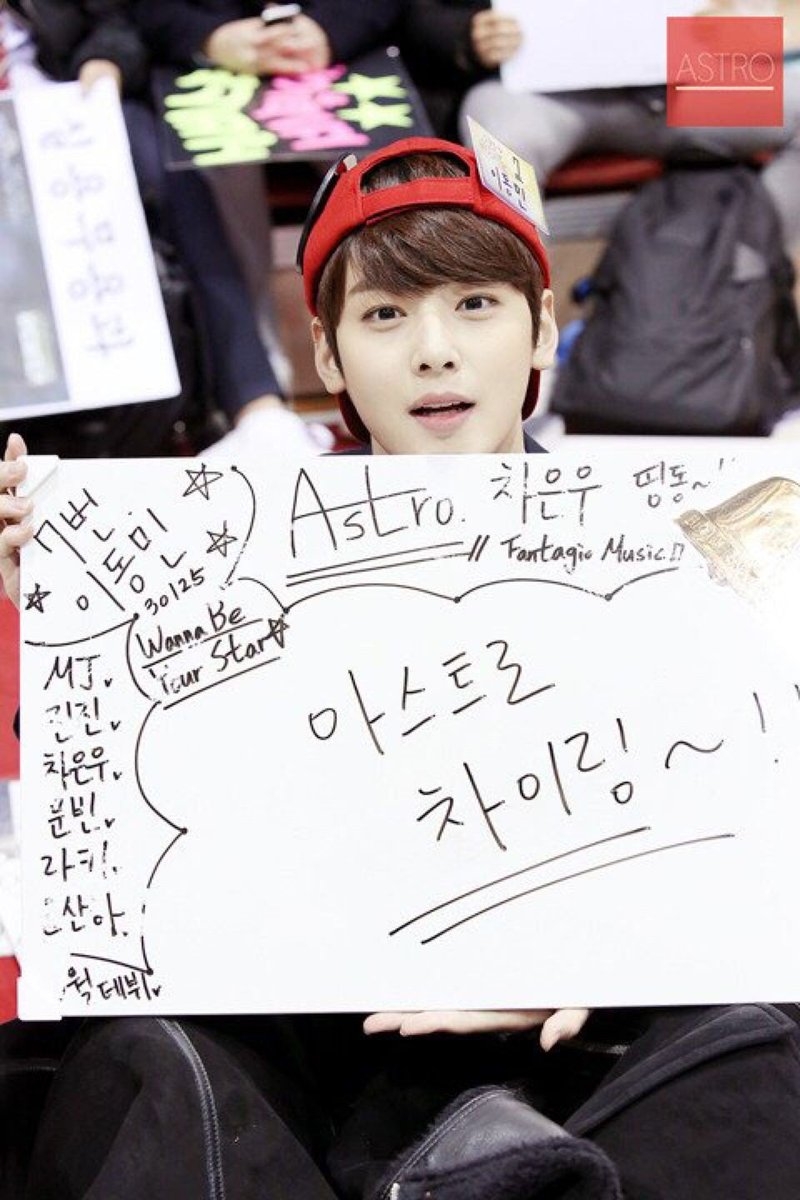 ASTRO
이동민
심응무용과
7번
이동민
30125
Astro. 차은우 핑동~!!
Fantagio Music!!
Wanna Be
Your Star
MJ.
진진.
차은우.
문빈.
라키.
산하.
데뷔.
아스트로
차이링~!!